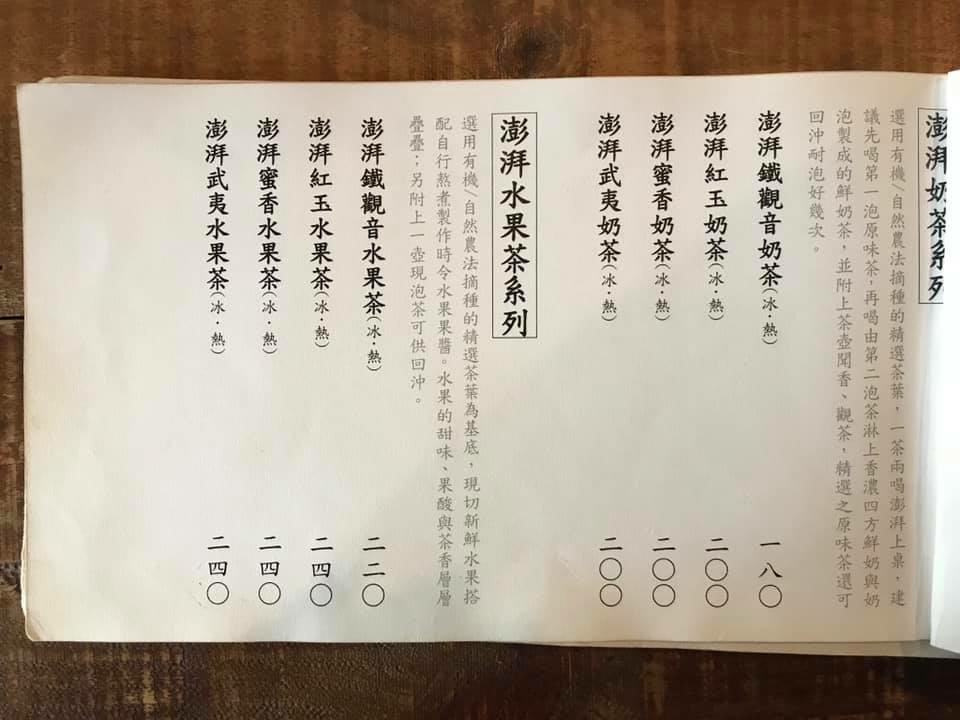 澎湃奶茶系列
選用有機/自然農法摘種的精選茶葉，一茶兩喝澎湃上桌，建
議先喝第一泡原味茶，再喝由第二泡茶淋上香濃四方鮮奶與奶
泡製成的鮮奶茶，並附上茶壺聞香、觀茶，精選之原味茶還可
回沖耐泡好幾次。
澎湃鐵觀音奶茶(冰·熱) 一八〇
澎湃紅玉奶茶(冰·熱) 二〇〇
澎湃蜜香奶茶(冰·熱) 二〇〇
澎湃武夷奶茶(冰·熱) 二〇〇
澎湃水果茶系列
選用有機/自然農法摘種的精選茶葉為基底，現切新鮮水果搭
配自行熬煮製作時令水果果醬。水果的甜味、果酸與茶香層層
疊疊；另附上一壺現泡茶可供回沖。
澎湃鐵觀音水果茶(冰·熱) 二二〇
澎湃紅玉水果茶(冰·熱) 二四〇
澎湃蜜香水果茶(冰·熱) 二四〇
澎湃武夷水果茶(冰·熱) 二四〇